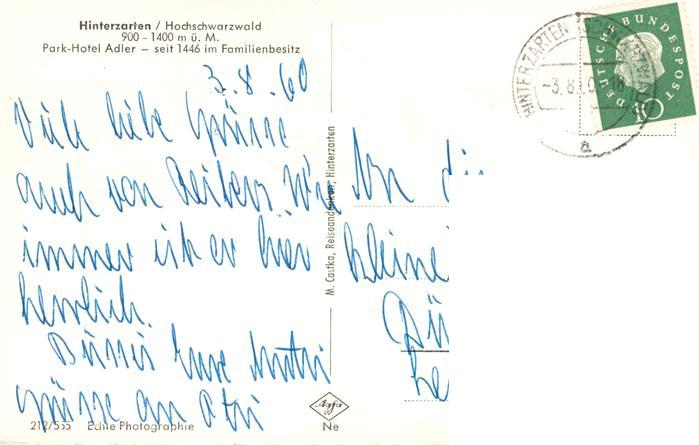 Hinterzarten / Hochschwarzwald
900 - 1400 m ü. M.
Park-Hotel Adler — seit 1446 im Familienbesitz
3.8.60
Viele liebe Grüsse
auch von Reiters. Wie
immer ist es hier
herrlich.
Eure Mutti
grüsse an
M. Castka, Reiseandenken, Hinterzarten
An
kleine
212/555 Echte Photographie
Agfa
Ne
DEUTSCHE BUNDESPOST
10
HINTERZARTEN
-3.8.60
a